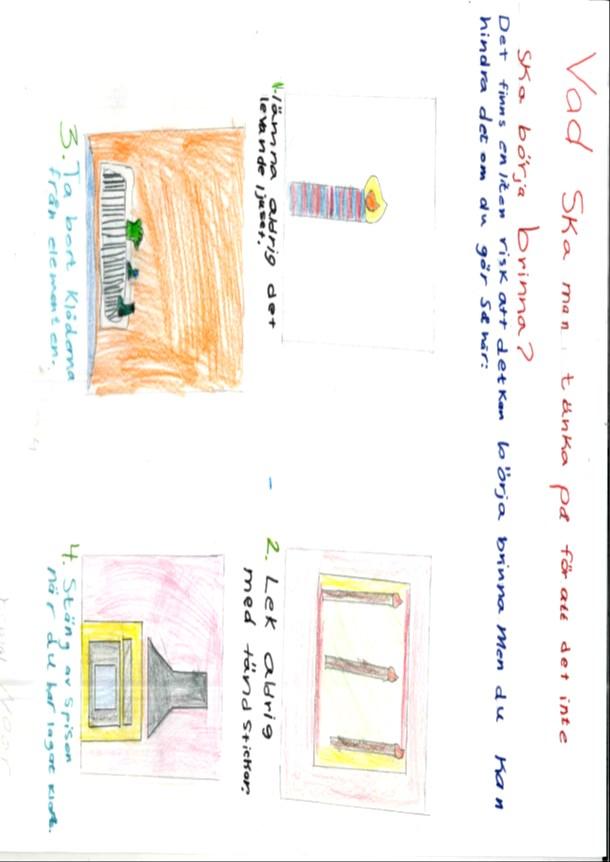 Vad ska man tänka på för att det inte
ska börja brinna?
Det finns en liten risk att det kan börja brinna Men du kan
hindra det om du gör så här:
1. lämna aldrig det
levande ljuset.
2. Lek aldrig
med tändstickor.
3. Ta bort kläderna
från elementen.
4. Stäng av spisen
när du har lagat klart.